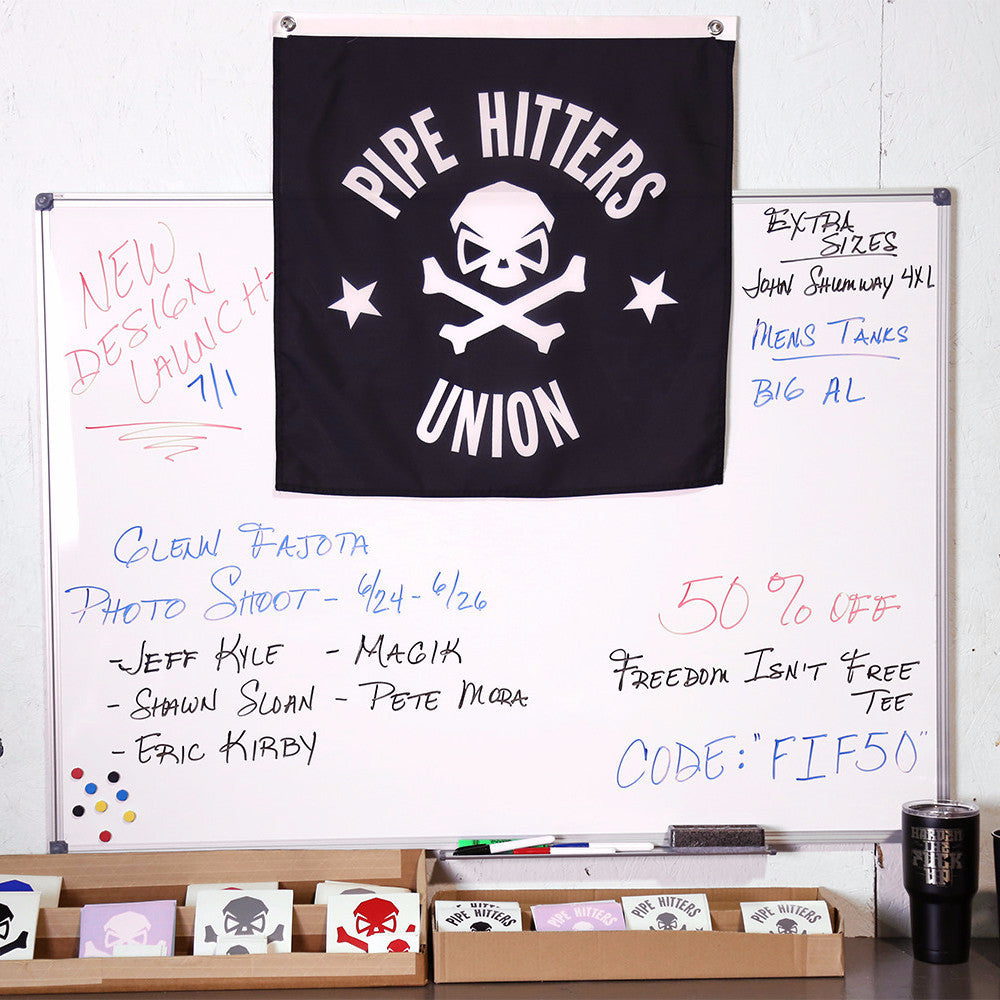 PIPE HITTERS
UNION
NEW
DESIGN
LAUNCH
7/1
EXTRA
SIZES
JOHN SHUMWAY 4XL
MENS TANKS
BIG AL
GLENN FAJOTA
PHOTO SHOOT - 6/24 - 6/26
- JEFF KYLE - MAGIK
- SHAWN SLOAN - PETE MORA
- ERIC KIRBY
50% OFF
FREEDOM ISN'T FREE
TEE
CODE: "FIF50"
HARDEN
THE
FUCK
UP
PIPE HITTERS
PIPE HITTERS
PIPE HITTERS
PIPE HITTERS